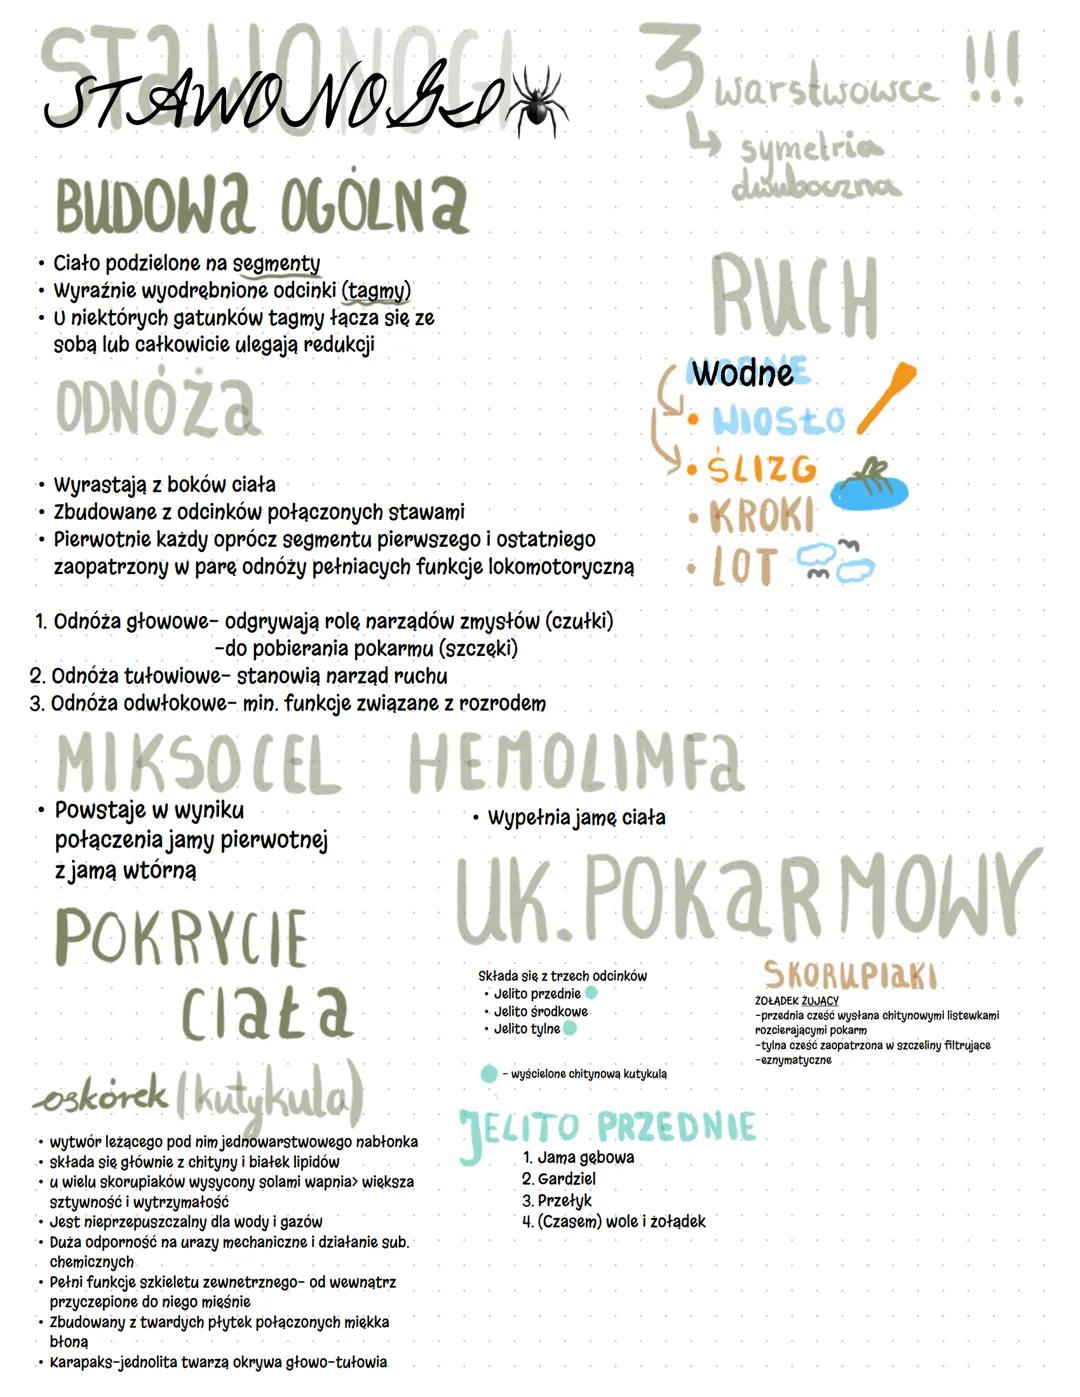 STAWONOGI
STAWONOGI
3 warstwowce !!!
symetria
dwuboczna
BUDOWA OGÓLNA
• Ciało podzielone na segmenty
• Wyraźnie wyodrębnione odcinki (tagmy)
• U niektórych gatunków tagmy łącza się ze
sobą lub całkowicie ulegają redukcji
RUCH
Wodne
• WIOSŁO
• ŚLIZG
• KROKI
• LOT
ODNÓŻA
• Wyrastają z boków ciała
• Zbudowane z odcinków połączonych stawami
• Pierwotnie każdy oprócz segmentu pierwszego i ostatniego
zaopatrzony w parę odnóży pełniacych funkcje lokomotoryczną
1. Odnóża głowowe- odgrywają rolę narządów zmysłów (czułki)
-do pobierania pokarmu (szczęki)
2. Odnóża tułowiowe- stanowią narząd ruchu
3. Odnóża odwłokowe- min. funkcje związane z rozrodem
MIKSOCEL
• Powstaje w wyniku
połączenia jamy pierwotnej
z jamą wtórną
HEMOLIMFA
• Wypełnia jamę ciała
POKRYCIE
CIAŁA
oskórek (kutykula)
• wytwór leżącego pod nim jednowarstwowego nabłonka
• składa się głównie z chityny i białek lipidów
• u wielu skorupiaków wysycony solami wapnia> większa
sztywność i wytrzymałość
• Jest nieprzepuszczalny dla wody i gazów
• Duża odporność na urazy mechaniczne i działanie sub.
chemicznych
• Pełni funkcje szkieletu zewnetrznego- od wewnątrz
przyczepione do niego mięśnie
• Zbudowany z twardych płytek połączonych miękka
błoną
• Karapaks-jednolita twarzą okrywa głowo-tułowia
UK. POKARMOWY
Składa się z trzech odcinków
• Jelito przednie
• Jelito środkowe
• Jelito tylne
- wyścielone chitynową kutykulą
SKORUPIAKI
ŻOŁĄDEK ŻUJACY
-przednia cześć wysłana chitynowymi listewkami
rozcierającymi pokarm
-tylna cześć zaopatrzona w szczeliny filtrujące
-eznymatyczne
JELITO PRZEDNIE
1. Jama gębowa
2. Gardziel
3. Przełyk
4. (Czasem) wole i żołądek